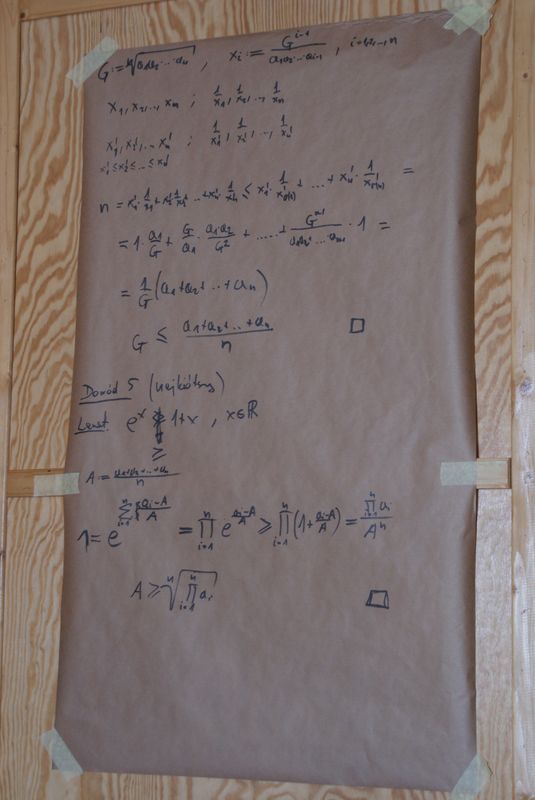 G := ⁿ√(a₁a₂·…·aₙ) , xᵢ := Gⁱ⁻¹/(a₁a₂·…·aᵢ₋₁) , i=1,2,…,n
x₁, x₂, …, xₙ ; 1/x₁, 1/x₂, …, 1/xₙ
x₁', x₂', … xₙ' ; 1/x₁', 1/x₂', …, 1/xₙ'
x₁' ≤ x₂' ≤ … ≤ xₙ'
n = x₁'·1/x₁' + x₂'·1/x₂' + … + xₙ'·1/xₙ' ≤ x₁'·1/x'σ(1) + … + xₙ'·1/x'σ(n) =
= 1·a₁/G + G/a₁·a₁a₂/G² + ….. + Gⁿ⁻¹/(a₁a₂·…·aₙ₋₁)·1 =
= 1/G (a₁+a₂+…+aₙ)
G ≤ (a₁+a₂+…+aₙ)/n □
Dowód 5 (najkrótszy)
Lemat eˣ 1+x , x∈ℝ
≥
A := (a₁+a₂+…+aₙ)/n
1 = e^(∑ᵢ₌₁ⁿ (aᵢ-A)/A) = ∏ᵢ₌₁ⁿ e^((aᵢ-A)/A) ≥ ∏ᵢ₌₁ⁿ (1+(aᵢ-A)/A) = (∏ᵢ₌₁ⁿ aᵢ)/Aⁿ
A ≥ ⁿ√(∏ᵢ₌₁ⁿ aᵢ) □